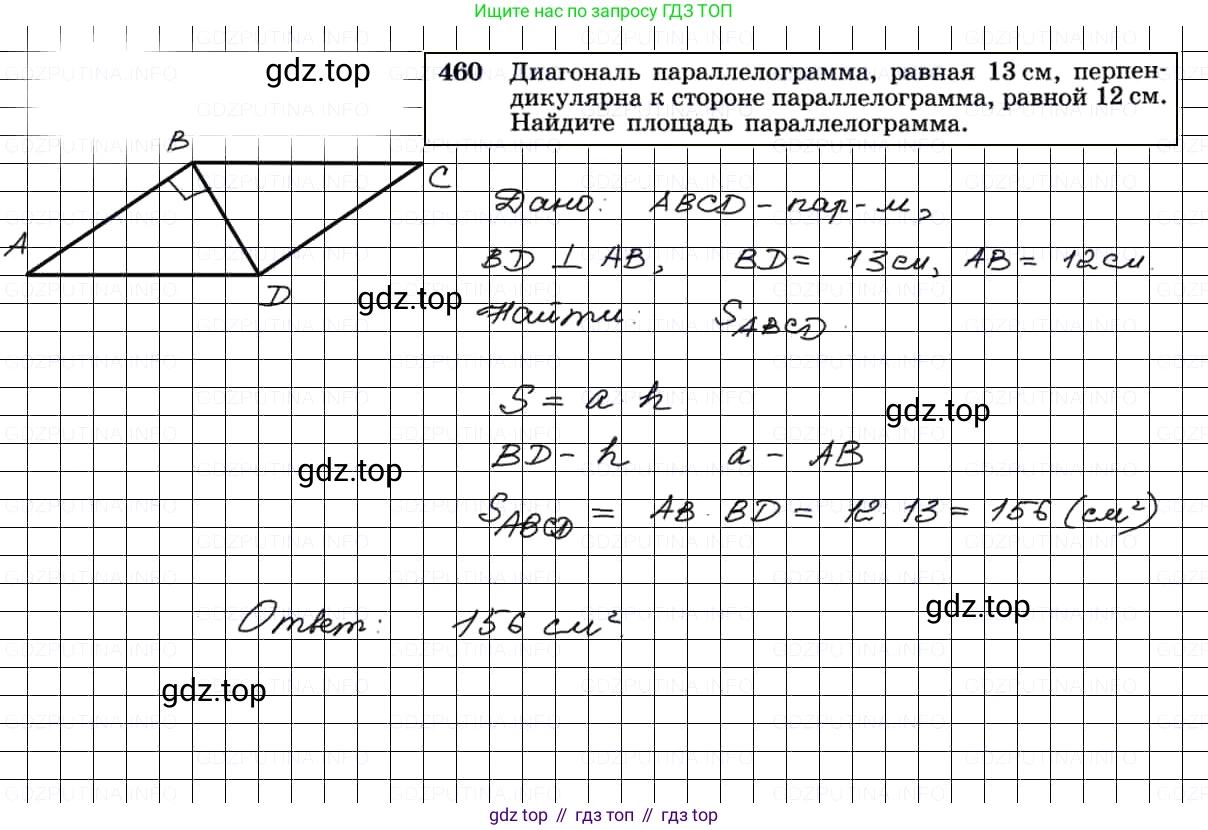 Ищите нас по запросу ГДЗ ТОП
gdz.top
460 Диагональ параллелограмма, равная 13 см, перпен-
дикулярна к стороне параллелограмма, равной 12 см.
Найдите площадь параллелограмма.
B
C
A
D
Дано: ABCD - пар-м,
BD ⊥ AB, BD = 13 см, AB = 12 см.
gdz.top
Найти: S ABCD.
S = a h
gdz.top
BD - h a - AB
gdz.top
S ABCD = AB · BD = 12 · 13 = 156 (см²)
gdz.top
Ответ: 156 см².
gdz.top
gdz.top // гдз топ // гдз top